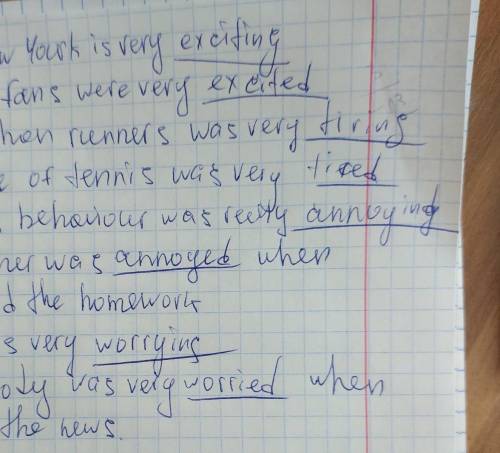 w York is very exciting
fans were very excited
hon runners was very tiring
e of tennis was very tired
behaviour was really annoying
her was annoyed when
d the homework
s very worrying
ody was very worried when
the news.